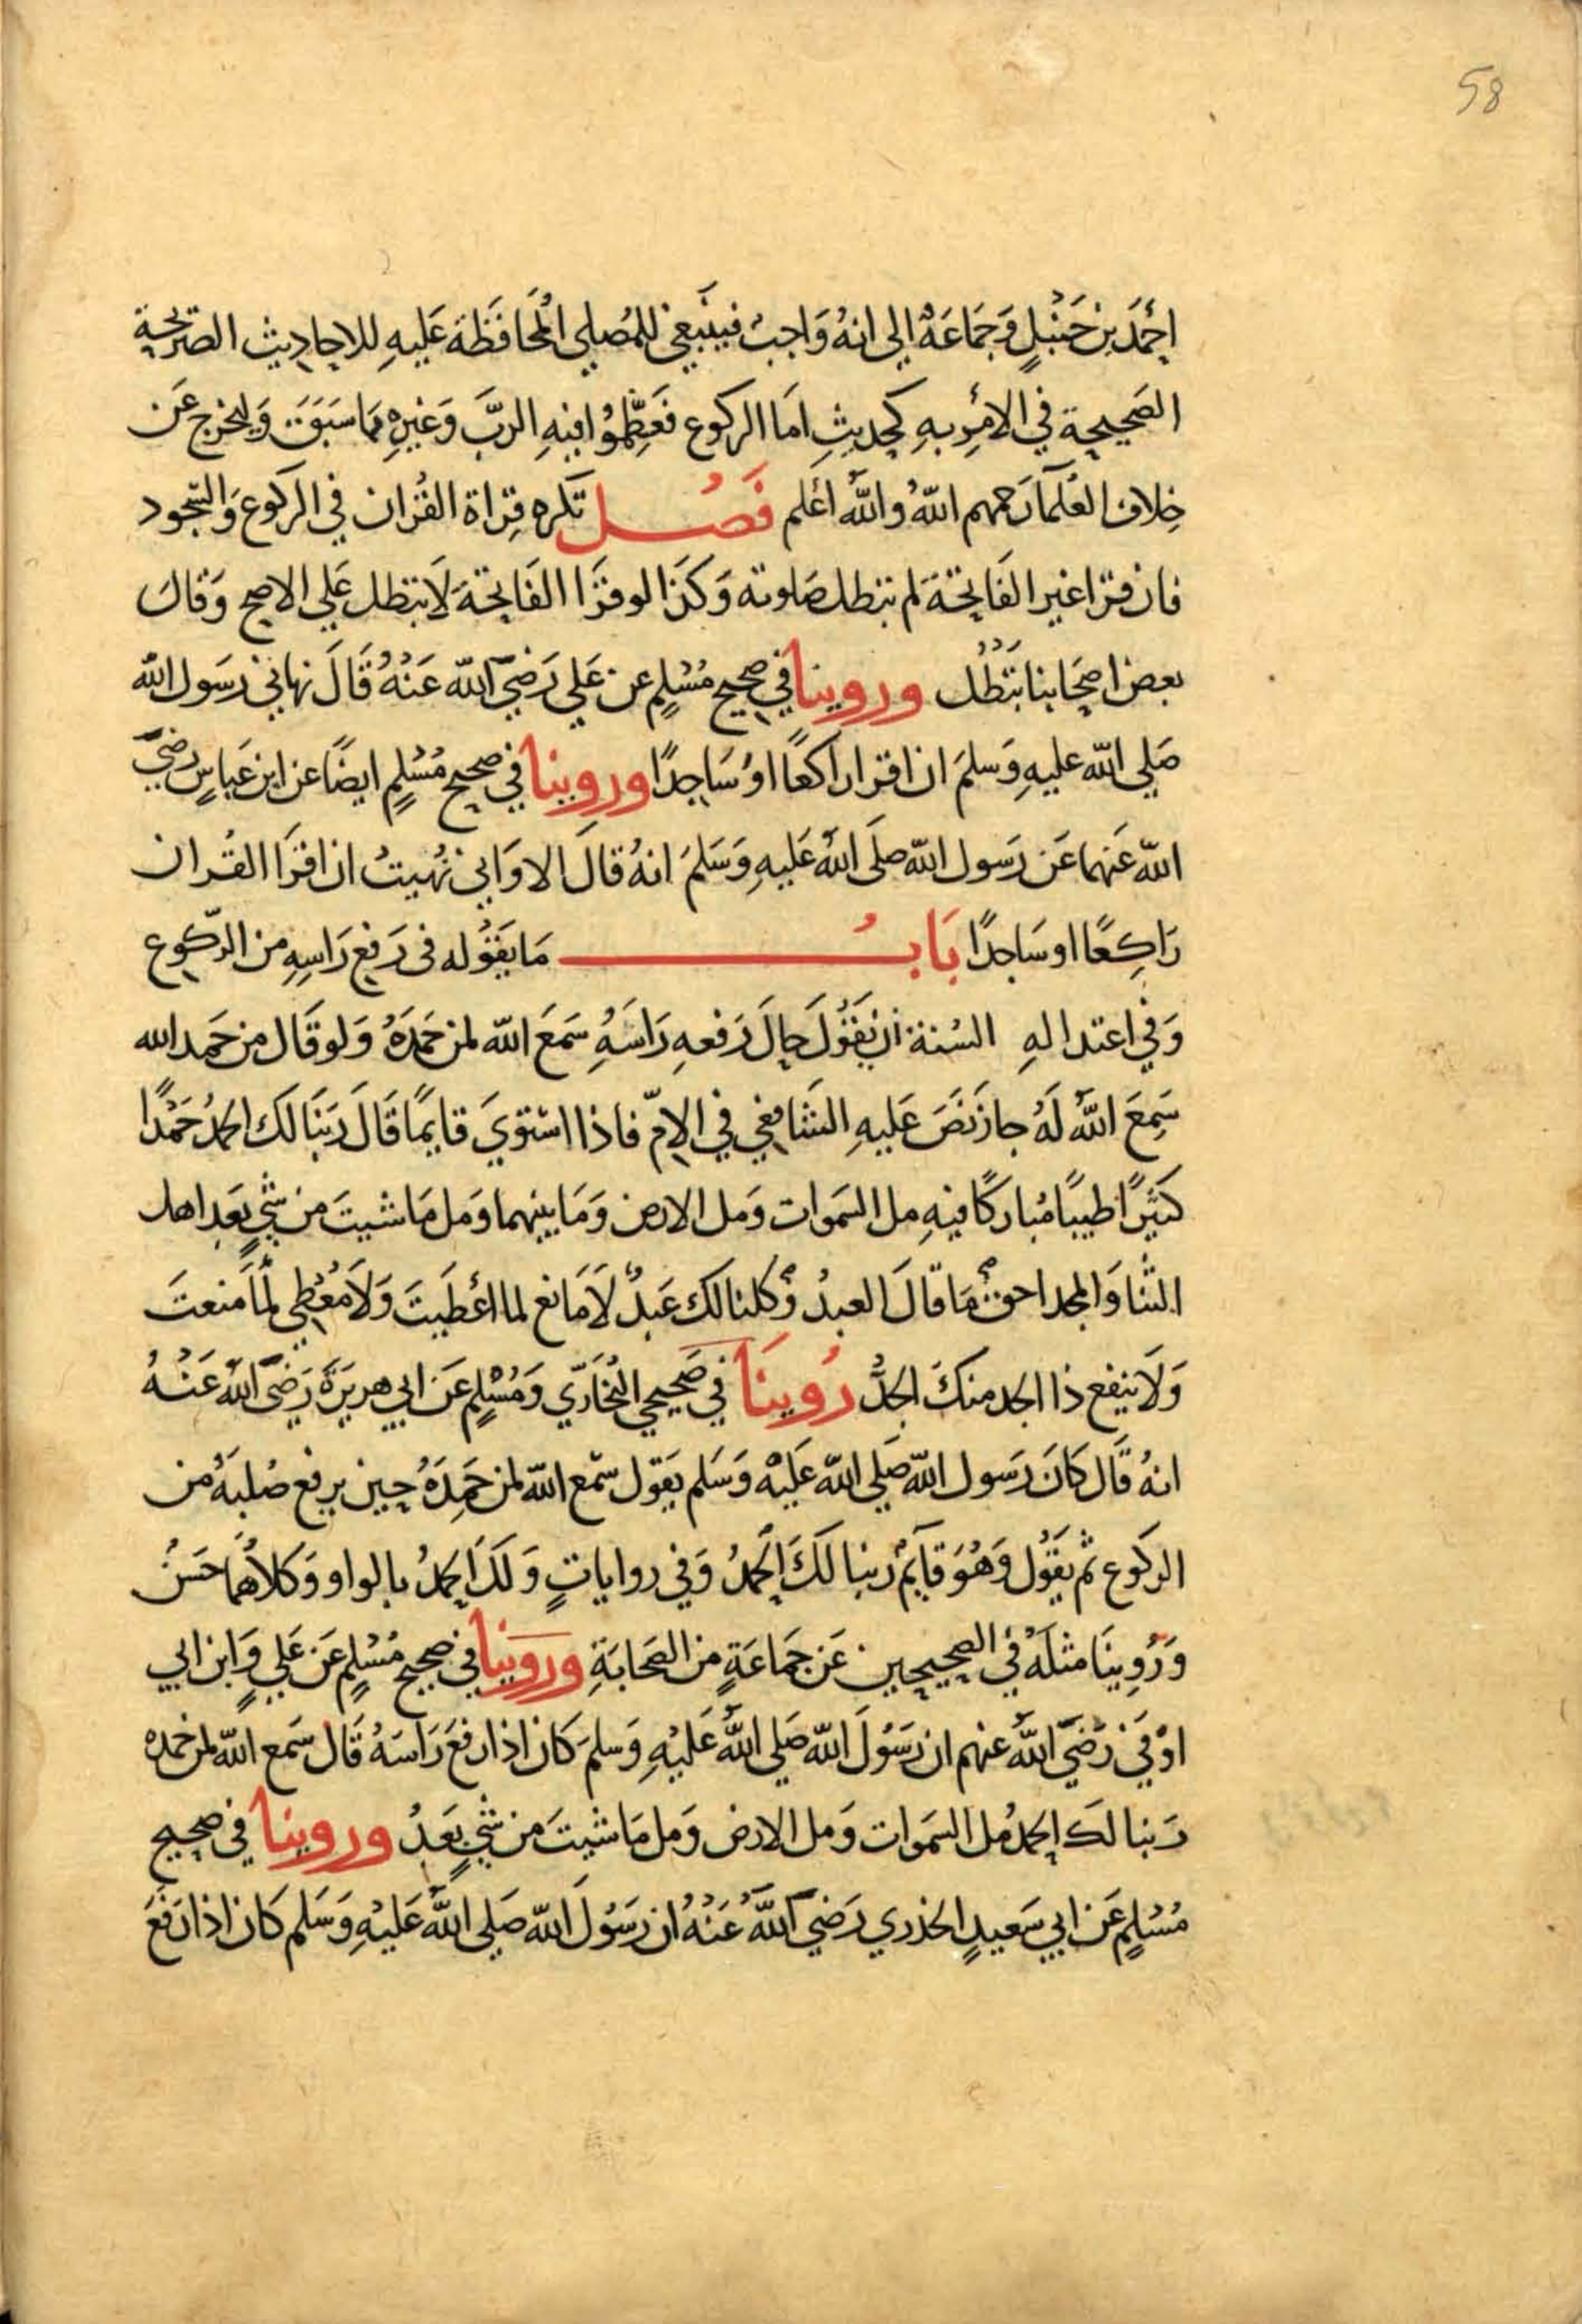 58
احمَدَ بن حَنْبَلٍ وَجَمَاعَةٌ الي انهُ وَاجبٌ فينبَغي للمُصَلي المُحَافَظَة عَليهِ للاحادِيث الصَّرِيحَة
الصَحيحة في الأمر بهِ كحدِيثِ امَا الركوع فعَظِّمُوا فيهِ الربَّ وَغيرِهِ مما سَبَقَ وَليخرج عَن
خِلاف العُلَمآ رَحمهم اللهُ والله أعلم فَصُل تكره قِرَاة القُرْان في الركوع وَالسّجود
فان قرا غير الفَاتِحَة لم تبطل صَلوته وَكذا لو قرَا الفَاتِحَة لَا تبطل عَلي الاصح وَقال
بعض اصحَابنا تبَطُل وروينا في صحيح مُسْلِمٍ عن عَلي رَضيَ اللّه عَنْهُ قَالَ نهاني رسَول الله
صَلي الله عليهِ وَسلمَ ان اقرا راكعًا اوْ سَاجدًا وروينا في صحيح مُسْلِمٍ ايضًا عن ابن عَباسٍ رضيَ
الله عَنهما عَن رَسول الله صلَى اللهُ عَليهِ وَسَلمَ انهُ قالَ الا وَاني نُهيتُ ان اقرَا القُران
رَاكِعًا او سَاجدًا بَابُ مَا يقَوُله في رَفع رَاسِهِ من الرّكوع
وَفي اعتدالهِ السُنة أن يقَوُلَ حالَ رَفعهِ رَاسَهُ سَمعَ اللّه لمن حَمَدَهُ وَلو قَال من حَمِد الله
سَمِعَ اللهُ لَهُ جاز نَصَ عَليهِ الشَافِعِي في الامّ فاذا استوي قايمًا قَالَ رَبَنا لك الحمدُ حَمْدًا
كَثيْرًا طيبًا مُباركًا فيهِ مل السَموات وَمل الارض وَمَا بينهما وَمل مَا شيتَ من شيٍ بَعد اهل
الثنا وَالمجد احق مَا قالَ العبدُ وَكلنا لك عَبدٌ لَا مَانع لما أعْطَيتَ وَلَا مُعْطِي لمَا مَنعتَ
وَلَا ينفع ذا الجد منكَ الجدُّ رُوينَا في صَحيحي البُخَارَيّ وَمُسْلِمٍ عَن ابي هريرَةَ رَضَي اللهُ عَنْهُ
انهُ قَال كَانَ رَسول الله صَلي الله عَليْه وَسَلم يقَول سَمع الله لمن حَمِدَهُ حِين يرفع صُلبَهُ من
الركوع ثم يقَوُل وَهُوَ قآيمٌ ربنا لَكَ الحَمدُ وَفي رواياتٍ وَلكَ الحمدُ بالواو وَكلاهُمَا حَسَنُ
وَرُوِينَا مثلَهُ في الصحيحين عَن جَمَاعَةٍ من الصَحَابَةِ وروينا في صحيح مُسْلِمٍ عَن عَليٍ وَابن ابي
اوْفيَ رَضيَ اللهُ عنهم ان رَسُوْلَ الله صَلي اللهُ عَليْهِ وَسلمَ كَان اذا رفعَ رَاسَهُ قَال سَمع الله لمن حمده
رَبنا لك الحمد مُل السَموات وَمل الارض وَمل مَا شيتَ من شيٍ بَعدُ وروينا في صحيح
مُسْلِمٍ عَن ابي سَعيدٍ الخدري رَضيَ اللهُ عَنْهُ ان رَسُوْلَ الله صَلي اللهُ عَليْهِ وَسَلم كَان اذا رَفعَ